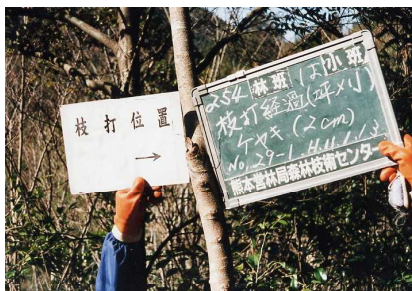 枝打位置
→
254 林班 は 小班
枝打経過(坪メリ)
ケヤキ(2cm)
No.29-1 H.11.1.13
熊本営林局森林技術センター